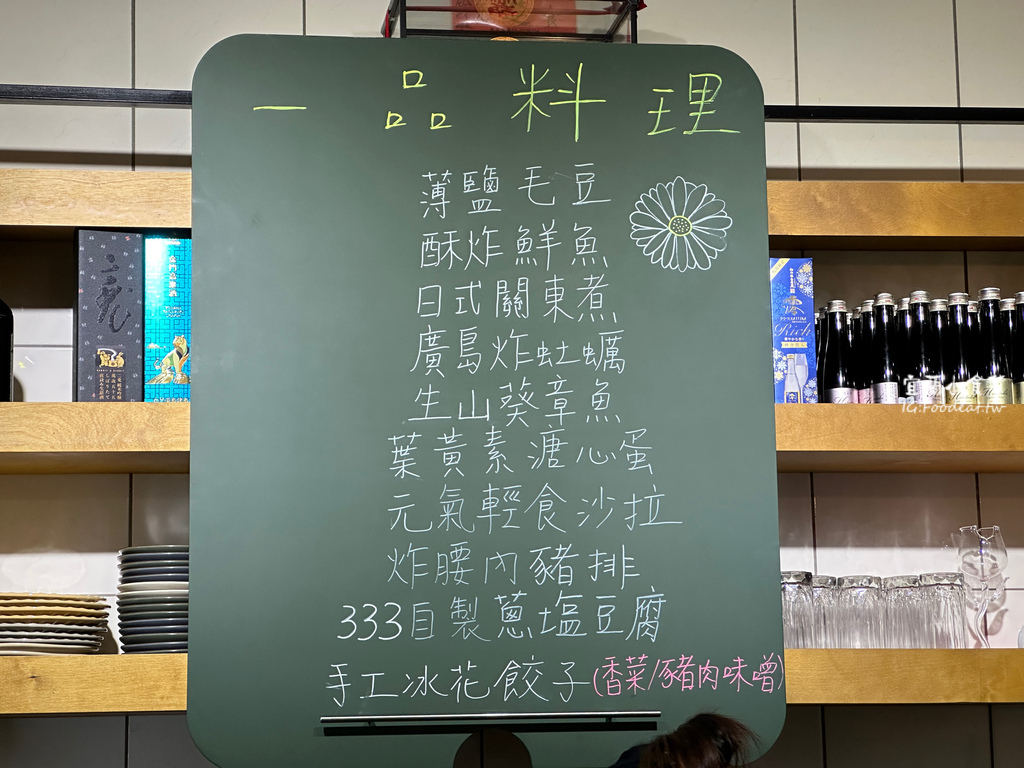 一品料理
薄鹽毛豆
酥炸鮮魚
日式關東煮
廣島炸牡蠣
生山葵章魚
葉黃素溏心蛋
元氣輕食沙拉
炸腰內豬排
333自製蔥塩豆腐
手工冰花餃子(香菜/豬肉味噌)
Rich
IG:Foodcat.tw